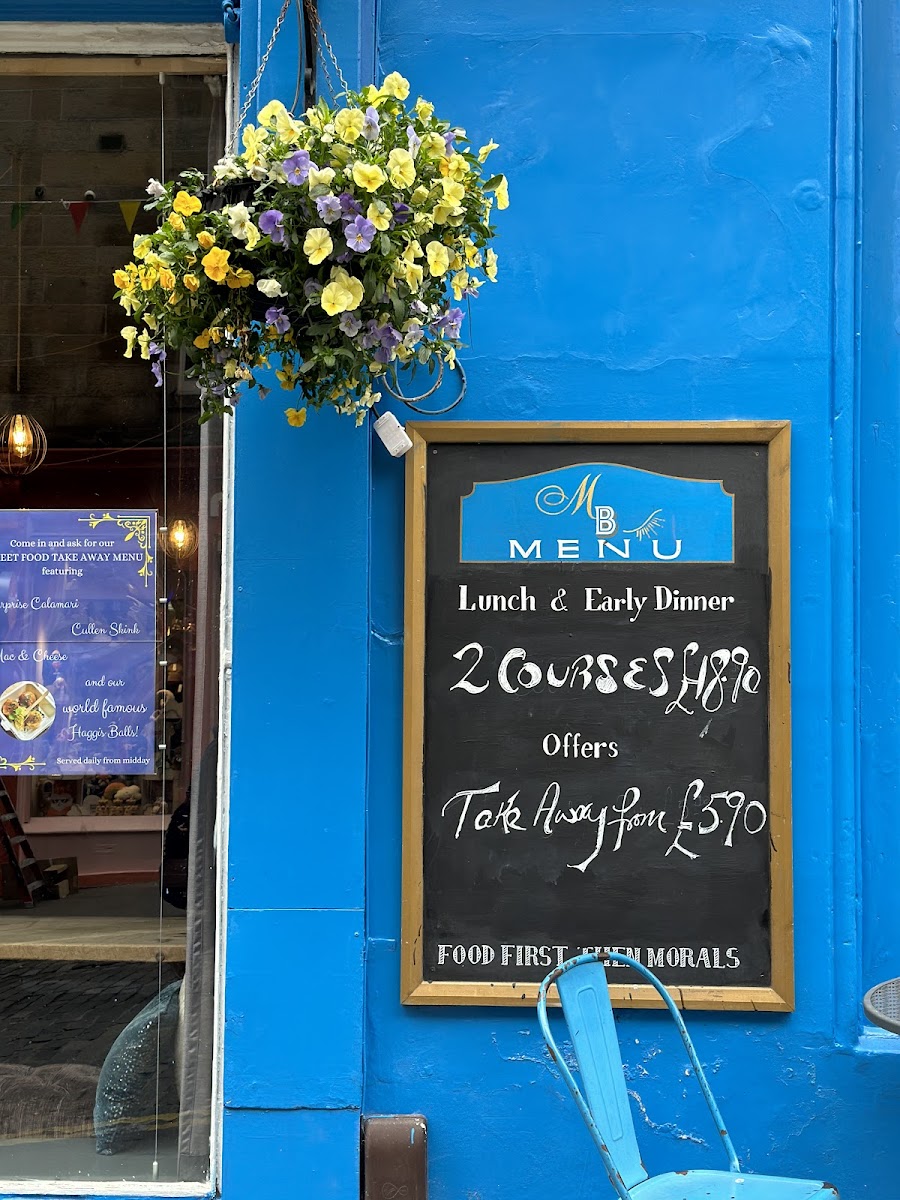 Come in and ask for our
EET FOOD TAKE AWAY MENU
featuring
rprise Calamari
Cullen Skink
Mac & Cheese
and our
world famous
Haggis Balls!
Served daily from midday
MB
MENU
Lunch & Early Dinner
2 COURSES £18.90
Offers
Take Away from £590
FOOD FIRST THEN MORALS